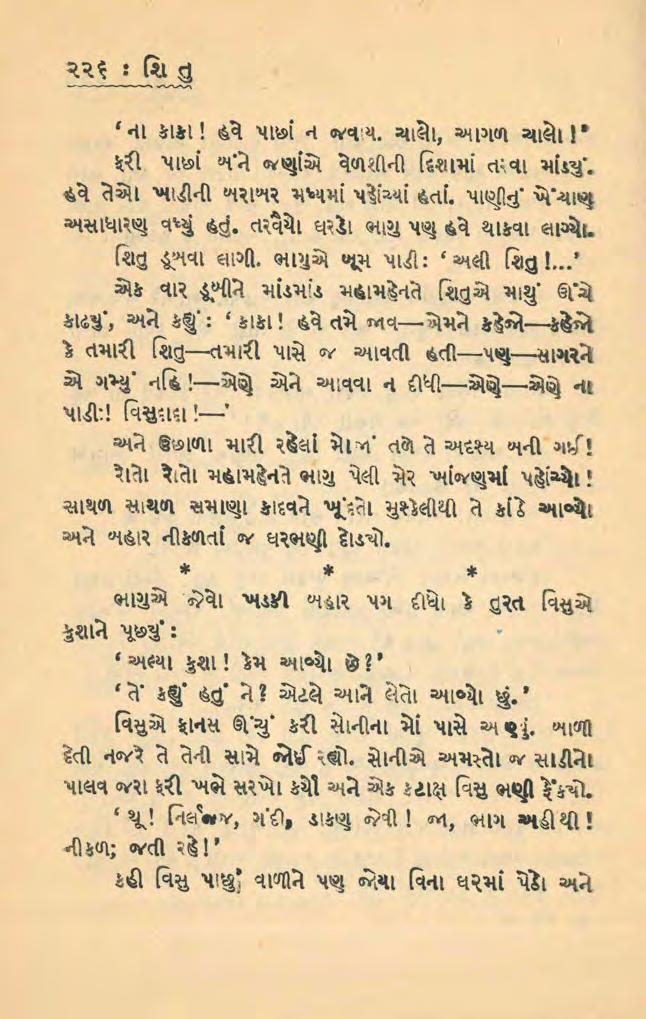 ૨૨૬ : શિ તુ
‘ના કાકા! હવે પાછાં ન જવાય. ચાલો, આગળ ચાલો !’
ફરી પાછાં બંને જણાંએ વેળશીની દિશામાં તરવા માંડ્યું.
હવે તેઓ ખાડીની બરાબર મધ્યમાં પહોંચ્યાં હતાં. પાણીનું ખેંચાણ
અસાધારણ વધ્યું હતું. તરવૈયો ઘરડો ભાગુ પણ હવે થાકવા લાગ્યો.
શિતુ ડૂબવા લાગી. ભાગુએ બૂમ પાડી: ‘અલી શિતુ !...’
એક વાર ડૂબીને માંડમાંડ મહામહેનતે શિતુએ માથું ઊંચે
કાઢ્યું, અને કહ્યું : ‘કાકા! હવે તમે જાવ—એમને કહેજો—કહેજો
કે તમારી શિતુ—તમારી પાસે જ આવતી હતી—પણ—સાગરને
એ ગમ્યું નહિ !—એણે એને આવવા ન દીધી—એણે—એણે ના
પાડી! વિસુદાદા !—’
અને ઉછાળા મારી રહેલાં મોજાં તળે તે અદૃશ્ય બની ગઈ!
રોતો રોતો મહામહેનતે ભાગુ પેલી મેર ખાંજણમાં પહોંચ્યો !
સાથળ સાથળ સમાણા કાદવને ખૂંદતો મુશ્કેલીથી તે કાંઠે આવ્યો
અને બહાર નીકળતાં જ ઘરભણી દોડ્યો.
* * *
ભાગુએ જેવો ખડકી બહાર પગ દીધો કે તુરત વિસુએ
કુશાને પૂછ્યું :
‘અલ્યા કુશા! કેમ આવ્યો છે?’
‘તેં કહ્યું હતું ને? એટલે આને લેતો આવ્યો છું.’
વિસુએ ફાનસ ઊંચું કરી સોનીના મોં પાસે આણ્યું. બાળી
દેતી નજરે તે તેની સામે જોઈ રહ્યો. સોનીએ અમસ્તો જ સાડીનો
પાલવ જરા ફરી ખભે સરખો કર્યો અને એક કટાક્ષ વિસુ ભણી ફેંક્યો.
‘થૂ! નિર્લજ્જ, ગંદી, ડાકણ જેવી! જા, ભાગ અહીંથી!
નીકળ; જતી રહે!’
કહી વિસુ પાછું વાળીને પણ જોયા વિના ઘરમાં પેઠો અને